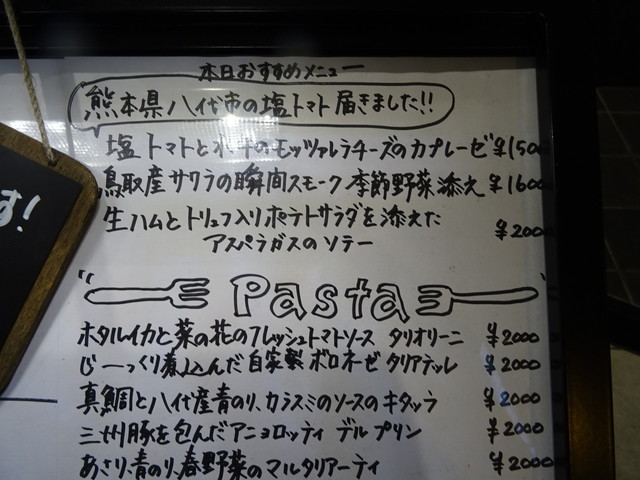 本日おすすめメニュー
熊本県八代市の塩トマト届きました!!
塩トマトと水牛のモッツァレラチーズのカプレーゼ ¥1500
鳥取産サワラの瞬間スモーク 季節野菜添え ¥1600
生ハムとトリュフ入りポテトサラダを添えた
アスパラガスのソテー ¥2000
す!
Pasta
ホタルイカと菜の花のフレッシュトマトソース タリオリーニ ¥2000
じーっくり煮込んだ自家製ボロネーゼ タリアテッレ ¥2000
真鯛と八代産青のり、カラスミのソースのキタッラ ¥2000
三州豚を包んだアニョロッティ デル プリン ¥2000
あさり、青のり、春野菜のマルタリアーティ ¥2000